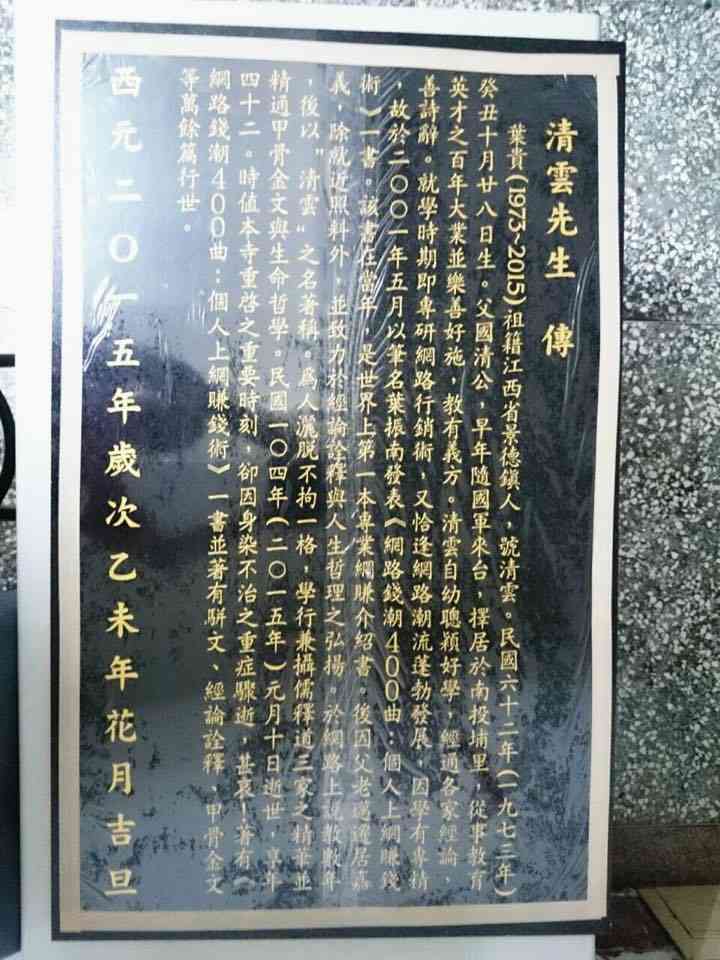 清雲先生　傳
葉貴(1973~2015)祖籍江西省景德鎮人，號清雲。民國六十二年(一九七三年)
癸丑十月廿八日生。父國清公，早年隨國軍來台，擇居於南投埔里，從事教育
英才之百年大業並樂善好施，教有義方。清雲自幼聰穎好學，經通各家經論、
善詩辭。就學時期即專研網路行銷術，又恰逢網路潮流蓬勃發展，因學有專精
，故於二００一年五月以筆名葉振南發表《網路錢潮400曲：個人上網賺錢
術》一書。該書在當年，是世界上第一本專業網賺介紹書。後因父老邁遷居嘉
義，除就近照料外，並致力於經論詮釋與人生哲理之弘揚。於網路上說教數年
，後以"清雲"之名著稱。為人灑脫不拘一格，學行兼攝儒釋道三家之精華並
精通甲骨金文與生命哲學。民國一０四年(二０一五年)元月十日逝世，享年
四十二。時值本寺重啓之重要時刻，卻因身染不治之重症驟逝，甚哀！著有《
網路錢潮400曲：個人上網賺錢術》一書並著有駢文、經論詮釋、甲骨金文
等萬餘篇行世。
西元二０一五年歲次乙未年花月吉旦